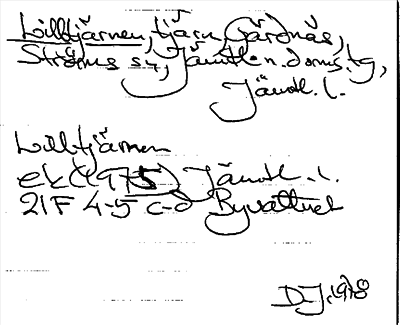 Lilltjärnen, tjärn, Gärdnäs,
Ströms sn, Jämtl. n. doms. tg,
Jämtl. l.
Lilltjärnen
ek (1975) Jämtl. l.
21F 4-5 c-d Byvattnet
D-J. 1978